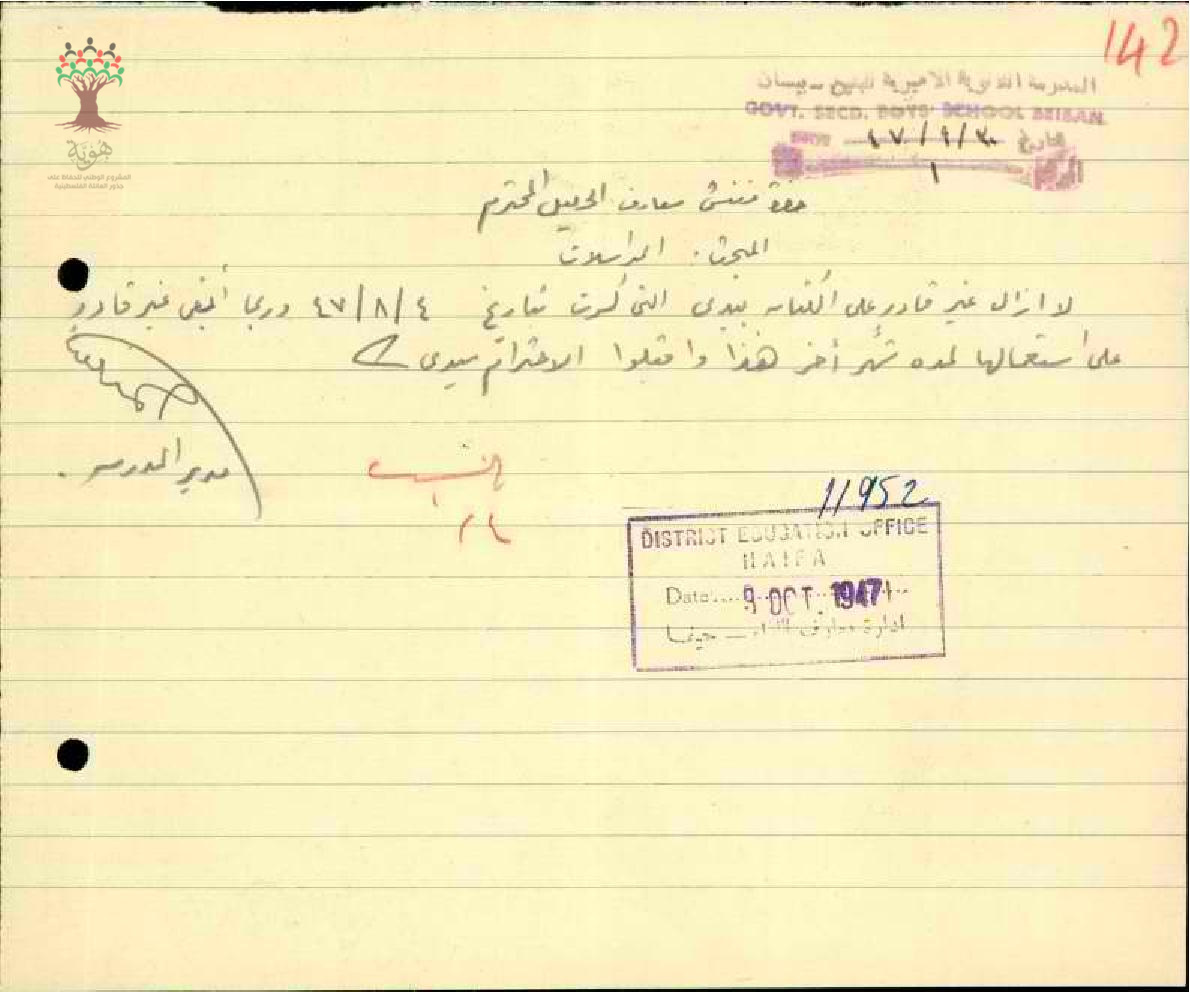 142
المدرسة الثانوية الاميرية للبنين - بيسان
GOVT. SECD. BOYS' SCHOOL BEISAN
التاريخ ٤٧/٩/٣٠ DATE
الرقم ١
هوية
المشروع الوطني للحفاظ على
جذور العائلة الفلسطينية
حضرة مفتش معارف الجليل المحترم
المبحث: المراسلات
لا ازال غير قادر على الكتابه بيدي التي كسرت بتاريخ ٤٧/٨/٤ وربما أبقى غير قادر
على استعمالها لمده شهر أخر هذا واقبلوا الاحترام سيدي
مدير المدرسه.
11952
DISTRICT EDUCATION OFFICE
HAIFA
Date.... 9 OCT. 1947
ادارة معارف اللواء - حيفا